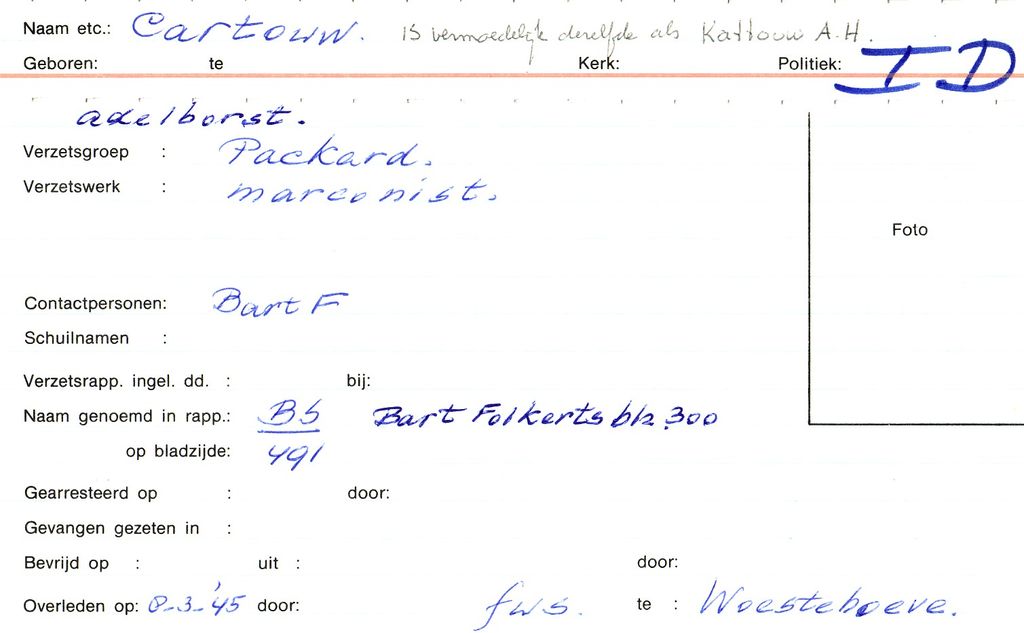 Naam etc.: Cartouw. is vermoedelijk dezelfde als Kattouw A.H.
Geboren: te Kerk: Politiek: ID
adelborst.
Verzetsgroep : Packard.
Verzetswerk : marconist.
Foto
Contactpersonen: Bart F
Schuilnamen :
Verzetsrapp. ingel. dd. : bij:
Naam genoemd in rapp.: BS Bart Folkerts blz 300
op bladzijde: 491
Gearresteerd op : door:
Gevangen gezeten in :
Bevrijd op : uit : door:
Overleden op: 8-3-'45 door: fws. te : Woesteboeve.